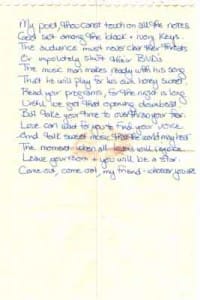 My poet, thou canst touch on all the notes
God set among the black + ivory Keys.
The audience must never clear their throats
Or impolitely shift their
The music man makes ready with his song
That he will play for his own honey sweet
Read your programs, for the night is long
Until we get that opening downbeat
But take your time to overthrow your fear.
Love can wait for you to find your voice
And talk sweet music that the world may hear
The moment when all will rejoice
Leave your room + you will be a star.
Come out, come out, my friend - whoever you are